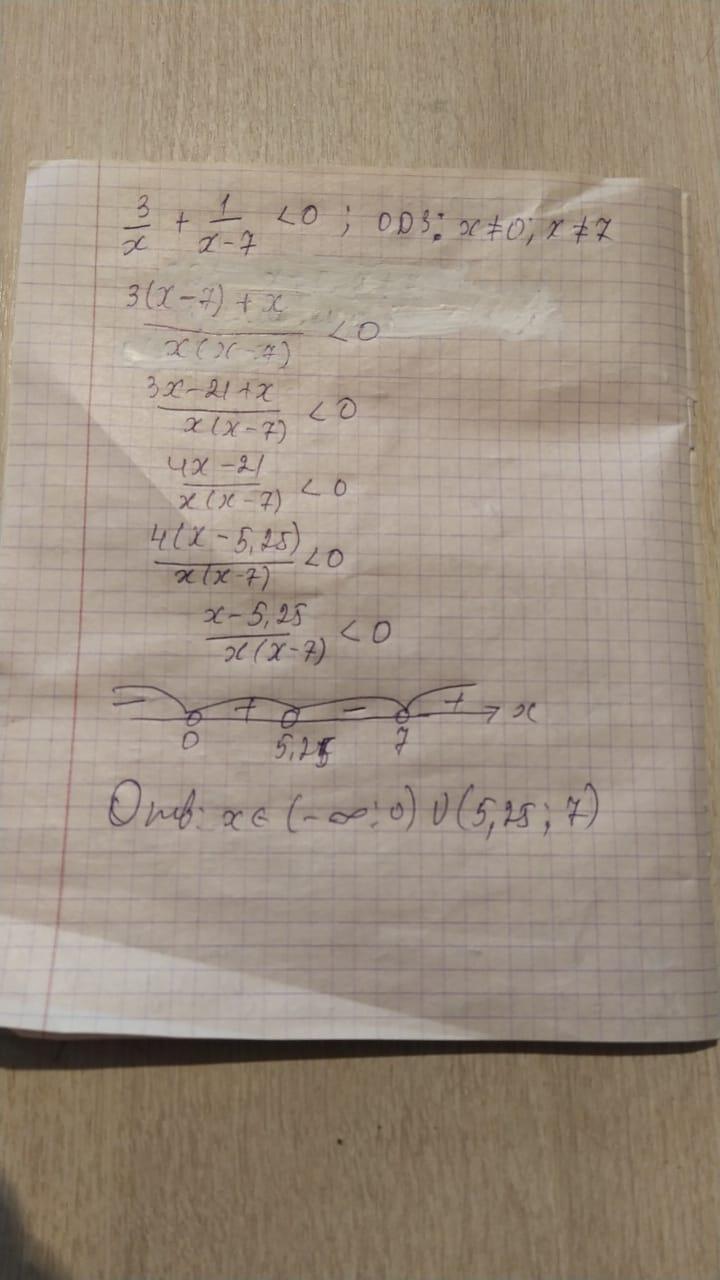 3/x + 1/(x-7) <0 ; ОДЗ: x≠0; x≠7
(3(x-7)+x)/(x(x-7)) <0
(3x-21+x)/(x(x-7)) <0
(4x-21)/(x(x-7)) <0
(4(x-5,25))/(x(x-7)) <0
(x-5,25)/(x(x-7)) <0
- + - + x
0 5,25 7
Отв: x∈(-∞;0)∪(5,25;7)